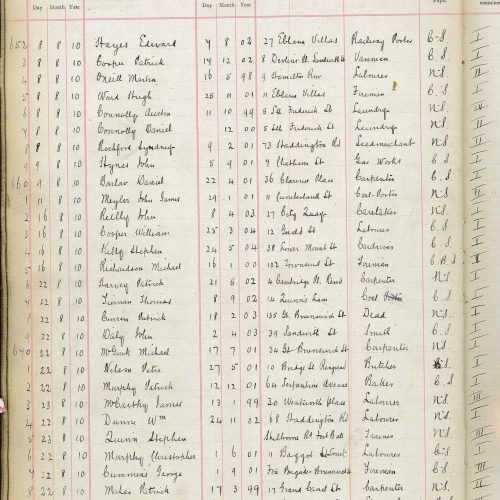 Day Month Year Day Month Year
652 8 8 10 Hayes Edward 4 8 02 27 Eblana Villas Railway Porter C.S. I
3 8 8 10 Cooper Patrick 14 12 02 Vanman C.S. I
4 8 8 10 O'Neill Martin 16 5 98 9 Hamilton Row Labourer N.S. II
5 8 8 10 Ward Hugh 25 11 01 11 Eblana Villas Fireman C.S. I
6 8 8 10 Connolly 11 10 99 5 Sth Frederick St Laundry N.S.
7 8 8 10 Connolly Daniel 12 00 5 Sth Frederick St Laundry N.S.
8 8 8 10 Rochford Sydney 9 2 01 73 Haddington Rd Seedmerchant N.S.
9 9 8 10 Hynes John 5 9 01 7 Chatham St Gas Works C.S. I
660 9 8 10 Daniel 22 4 01 36 Clarence Place Carpenter C.S. I
1 11 8 10 Meyler John James 29 1 01 11 Cumberland St Coal-Porter N.S.
2 16 8 10 Reilly John 8 4 03 27 City Quay Caretaker N.S. I
3 16 8 10 Cooper William 25 3 04 12 St Labourer C.S. I
4 16 8 10 Kelly Stephen 24 5 04 38 Power Mount St C.S. I
5 16 8 10 Richardson Michael 16 1 00 132 Townsend St Fireman C.B.S.
6 22 8 10 Harvey Patrick 21 6 02 4 Cambridge St Carpenter N.S. I
7 22 8 10 Tiernan Thomas 8 9 02 14 Quinns Lane Coal C.S. I
8 22 8 10 Curran Patrick 18 2 03 135 Gt. Brunswick St Dead N.S. I
9 22 8 10 Daly John 2 4 03 39 Sandwith St Smith C.S. I
670 22 8 10 McGuirk Michael 17 7 01 34 Gt. Brunswick St Carpenter N.S. I
1 22 8 10 Nelson Peter 27 5 01 10 Bridge St Ringsend Butcher N.S. I
2 22 8 10 Murphy Patrick 12 12 01 64 Serpentine Avenue Baker C.S. I
3 23 8 10 McCarthy James 13 1 99 20 Wentworth Place Labourer N.S. III
4 22 8 10 Dunne Wm 24 11 02 68 Haddington Rd Labourer N.S. I
5 23 8 10 Quinn Stephen Shelbourne Rd Foot Ball Trainer N.S.
6 22 8 10 Murphy Christopher 1 6 01 11 Baggot Court Labourer N.S.
7 22 8 10 Cummins George 1 9 01 Fire Brigade Brunswick St Fireman C.S.
8 22 8 10 Maher Patrick 17 3 99 17 Grand Canal St Carpenter N.S.